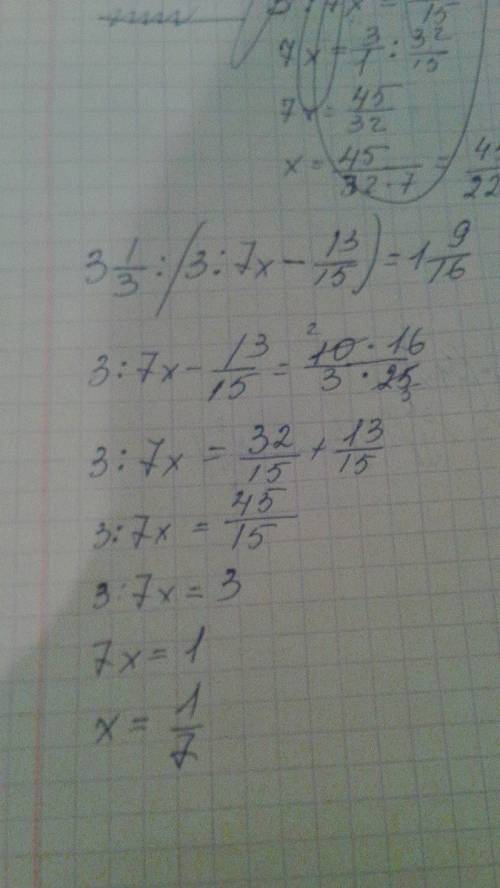 3 : 7x = /15
7x = 3/1 : 32/15
7x = 45/32
x = 45/(32·7) = 45/22
3 1/3 : (3 : 7x − 13/15) = 1 9/16
3 : 7x − 13/15 = (10 2 · 16)/(3 · 25 5)
3 : 7x = 32/15 + 13/15
3 : 7x = 45/15
3 : 7x = 3
7x = 1
x = 1/7